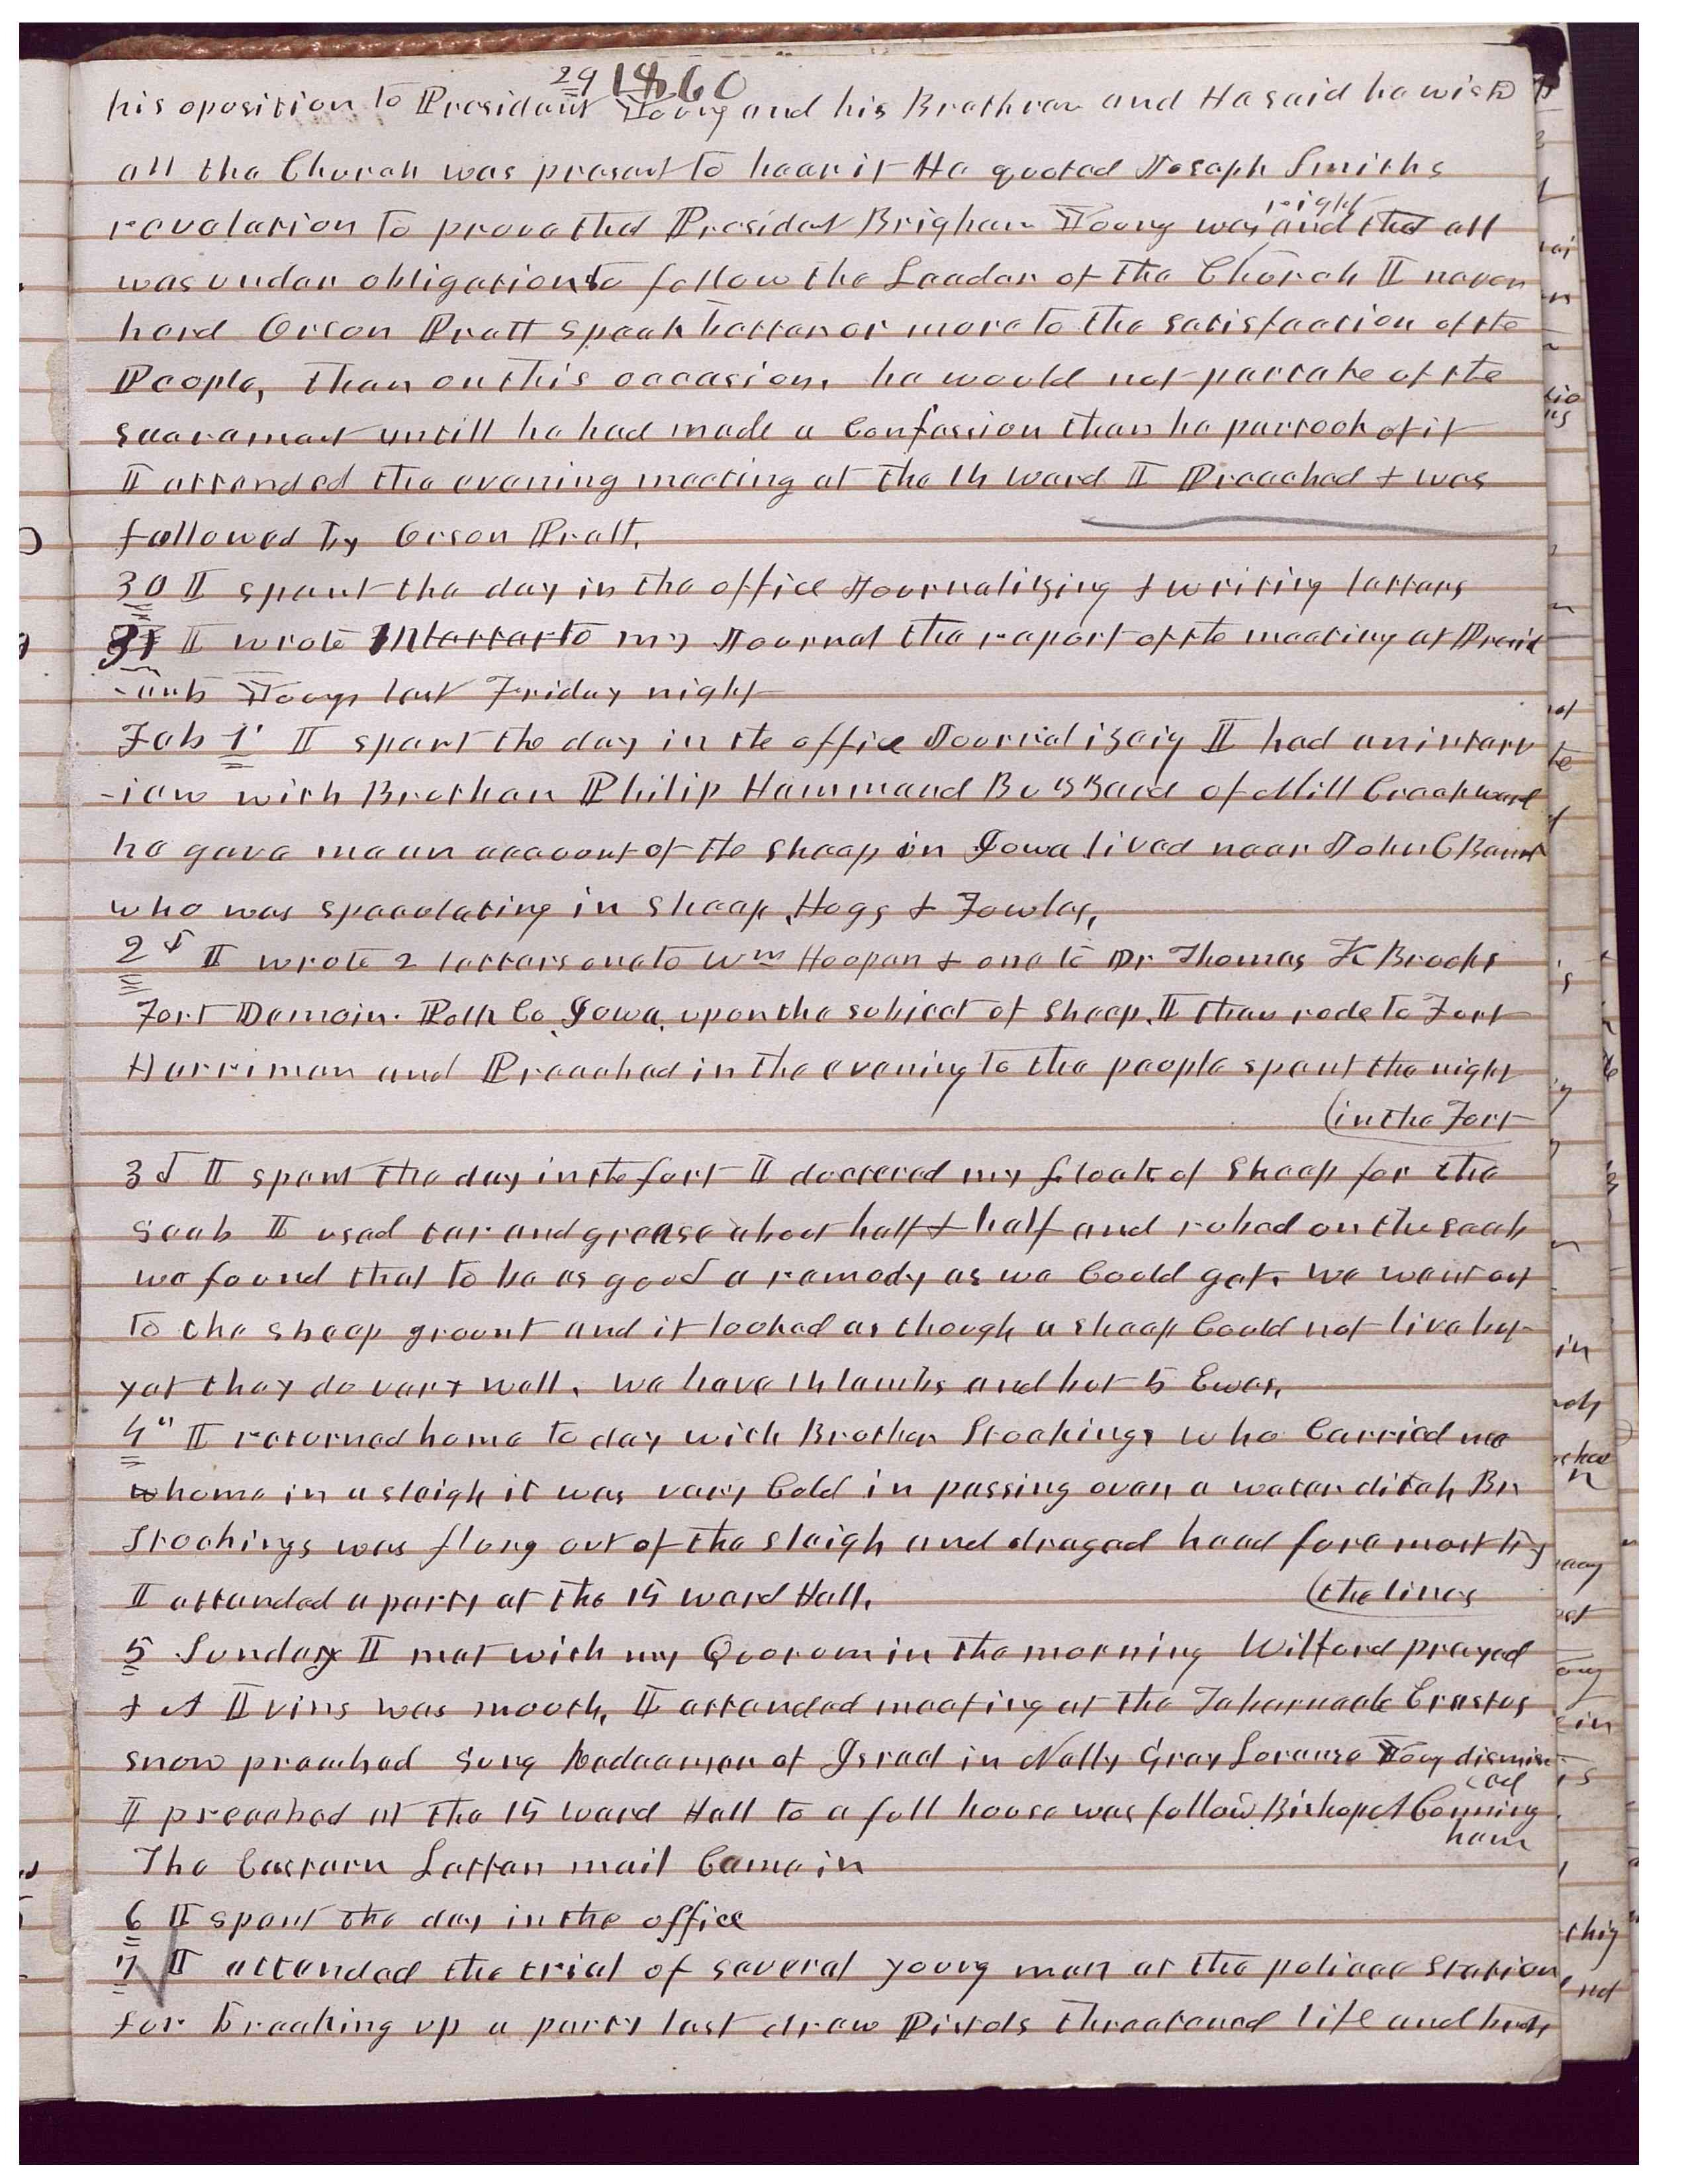 29 1860
his oposition to President Young and his Brethren and He said he wisd
all the Church was present to hear it He quoted Joseph Smiths
revelation to prove that President Brigham Young was right and that all
was under obligation to follow the Leader of the Church I never
herd Orson Pratt speak better or more to the satisfaction of the
People, than on this occasion. he would not partake of the
sacrament untill he had made a Confession then he partook of it
I attended the evening meeting at the 14 ward I Preached & was
followed by Orson Pratt.
30 I spent the day in the office Journalizing & writing letters
31 I wrote in my Journal the report of the meeting at Presid
-ents Youngs last Friday night
Feb 1st I spent the day in the office Journalizeig I had an interv
-iew with Brother Philip Hammand Buzzard of Mill Creek ward
he gave me an account of the sheep in Iowa lived near John C
who was speculating in sheep, Hogs & Fowles,
2d I wrote 2 letters one to Wm Hooper & one to Dr Thomas K Brooks
Fort Demoin. Polk Co, Iowa, upon the subject of sheep. I then rode to Fort
Harriman and Preached in the evening to the people spent the night
(in the Fort
3d I spent the day in the fort I doctered my flock of sheep for the
scab I used tar and grease about half & half and rubed on the scab
we found that to be as good a remedy as we Could get. we went out
to the sheep grount and it looked as though a sheep Could not live but
yet they do very well. we have 14 lambs and but 5 Ewes,
4th I returned home to day with Brother Stockings who Carried me
home in a sleigh it was very Cold in passing over a water ditch Br
Stockings was flung out of the sleigh and draged head foremost by
(the lines
I attended a party at the 15 ward Hall.
5 Sunday I met with my Quorum in the morning Wilford prayed
& A Ivins was mouth, I attended meeting at the Tabernacle Erastus
snow preached Sung Redeemer of Israel in Nelly Gray Lorenzo Young dismiss
ed
I preached at the 15 ward Hall to a full house was follow Bishop A Cunning
ham
The Eastern Letter mail Came in
6 I spent the day in the office
7 I attended the trial of several young men at the policee station
for breaking up a party last draw Pistols threatened life and